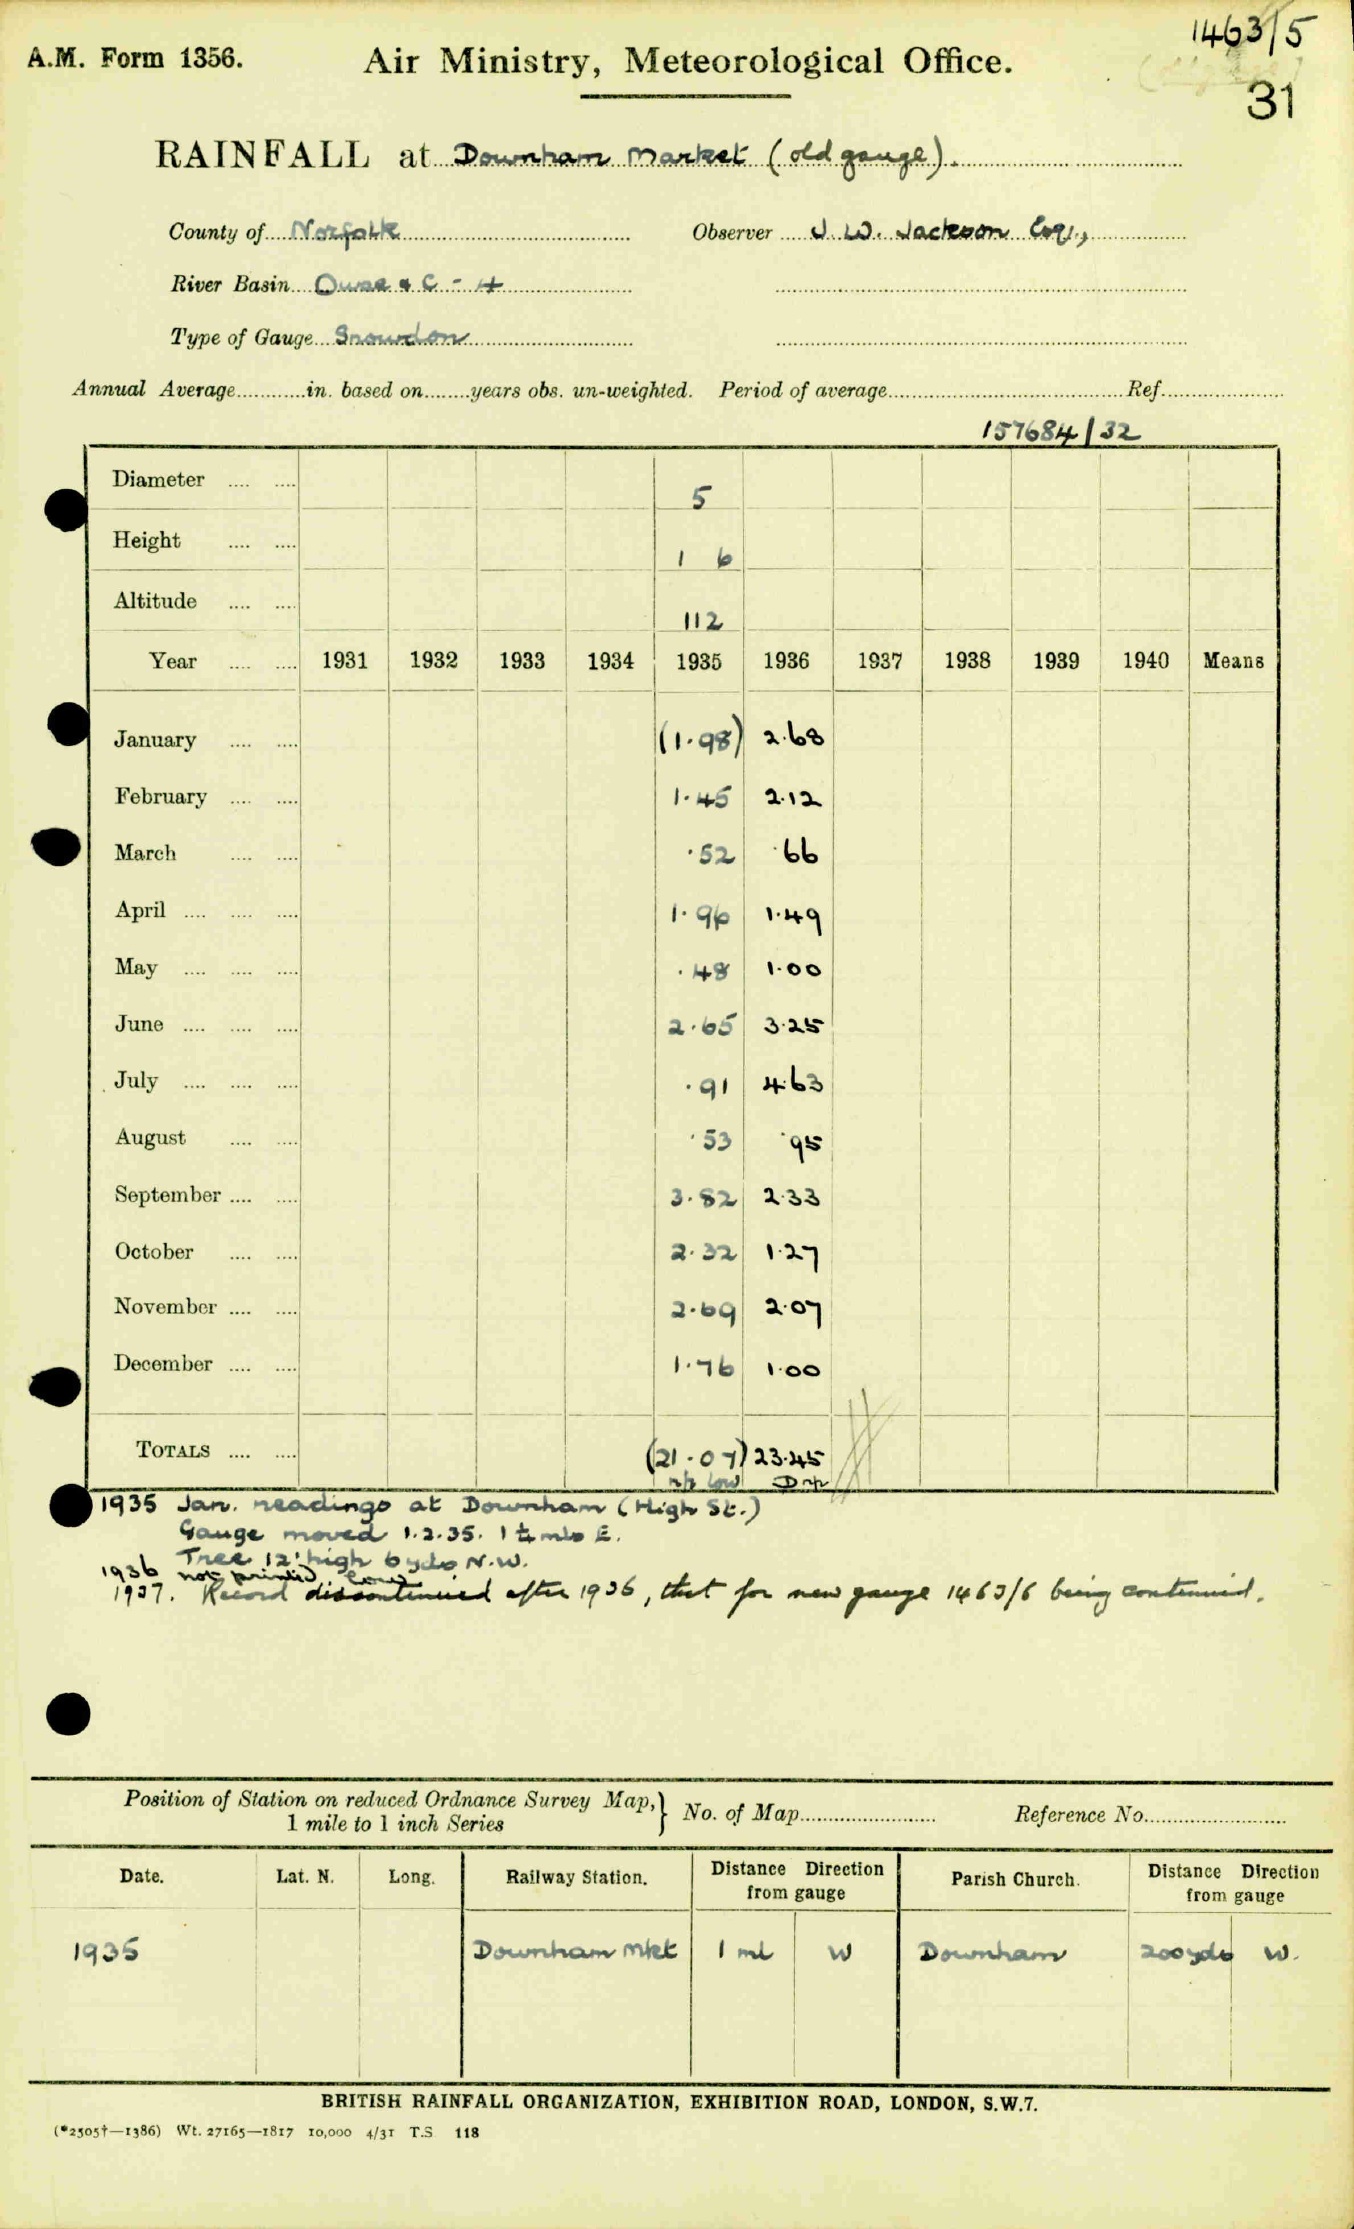 1463/5
A.M. Form 1356. Air Ministry, Meteorological Office.
31
RAINFALL at Downham Market (old gauge).
County of Norfolk Observer J. W. Jackson Esq.,
River Basin Ouse & C - 4
Type of Gauge Snowdon
Annual Average in. based on years obs. un-weighted. Period of average Ref.
157684/32
Diameter 5
Height 1 6
Altitude 112
Year 1931 1932 1933 1934 1935 1936 1937 1938 1939 1940 Means
January (1.98) 2.68
February 1.45 2.12
March .52 .66
April 1.96 1.49
May .48 1.00
June 2.65 3.25
July .91 4.63
August .53 .95
September 3.82 2.33
October 2.32 1.27
November 2.69 2.07
December 1.76 1.00
TOTALS (21.07) 23.45
n/p low D n/p
1935 Jan. readings at Downham (High St.)
Gauge moved 1.2.35. 1¼ mls E.
Tree 12' high 6 yds N.W.
1936 not printed low
1937. Record discontinued after 1936, that for new gauge 1463/6 being continued.
Position of Station on reduced Ordnance Survey Map, } No. of Map Reference No.
1 mile to 1 inch Series
Date. Lat. N. Long. Railway Station. Distance Direction from gauge Parish Church. Distance Direction from gauge
1935 Downham Mkt 1 ml W Downham 200 yds W.
BRITISH RAINFALL ORGANIZATION, EXHIBITION ROAD, LONDON, S.W.7.
(*2505†—1386) Wt. 27165—1817 10,000 4/31 T.S 118